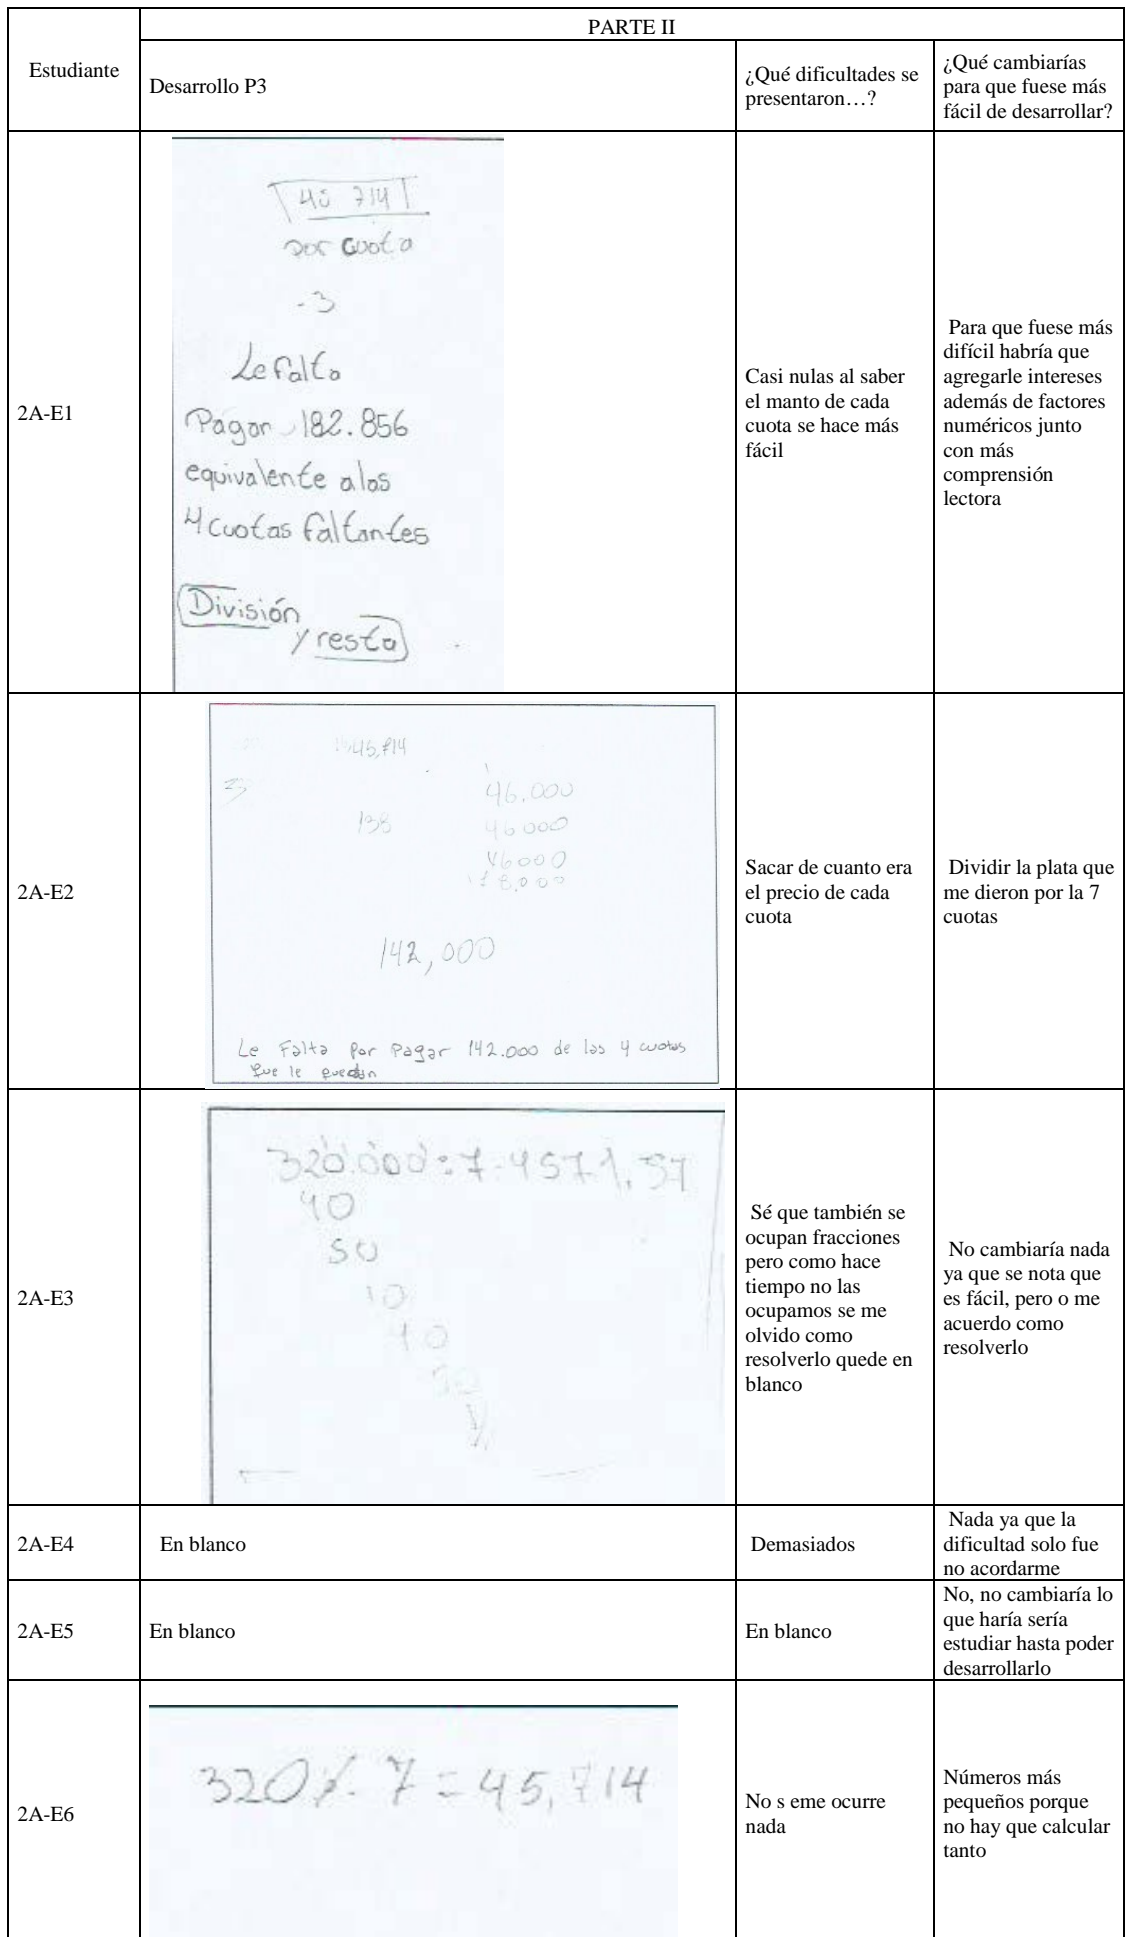 PARTE II
Estudiante
Desarrollo P3
¿Qué dificultades se
presentaron…?
¿Qué cambiarías
para que fuese más
fácil de desarrollar?
2A-E1
714
por cuota
-3
Le falta
Pagar 182.856
equivalente a las
4 cuotas faltantes
División
y resta
Casi nulas al saber
el manto de cada
cuota se hace más
fácil
Para que fuese más
difícil habría que
agregarle intereses
además de factores
numéricos junto
con más
comprensión
lectora
2A-E2
45,714
138
46.000
46000
46000
142,000
Le Falta Por Pagar 142.000 de las 4 cuotas
que le quedan
Sacar de cuanto era
el precio de cada
cuota
Dividir la plata que
me dieron por la 7
cuotas
2A-E3
320.000:7=
40
50
10
40
Sé que también se
ocupan fracciones
pero como hace
tiempo no las
ocupamos se me
olvido como
resolverlo quede en
blanco
No cambiaría nada
ya que se nota que
es fácil, pero o me
acuerdo como
resolverlo
2A-E4
En blanco
Demasiados
Nada ya que la
dificultad solo fue
no acordarme
2A-E5
En blanco
En blanco
No, no cambiaría lo
que haría sería
estudiar hasta poder
desarrollarlo
2A-E6
320 7 = 45,714
No s eme ocurre
nada
Números más
pequeños porque
no hay que calcular
tanto